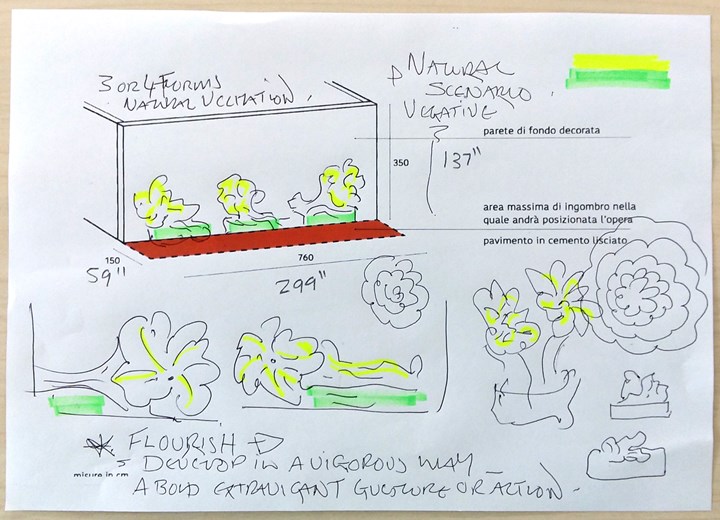 3 OR 4 FORMS
NATURAL VEGITATION.
NATURAL
SCENARIO.
VEGATIVE
?
parete di fondo decorata
350
137"
area massima di ingombro nella
quale andrà posizionata l'opera
pavimento in cemento lisciato
150
760
59"
299"
FLOURISH
DEVELOP IN A VIGOROUS WAY
misure in cm
A BOLD EXTRAVIGANT GUESTURE OR ACTION.